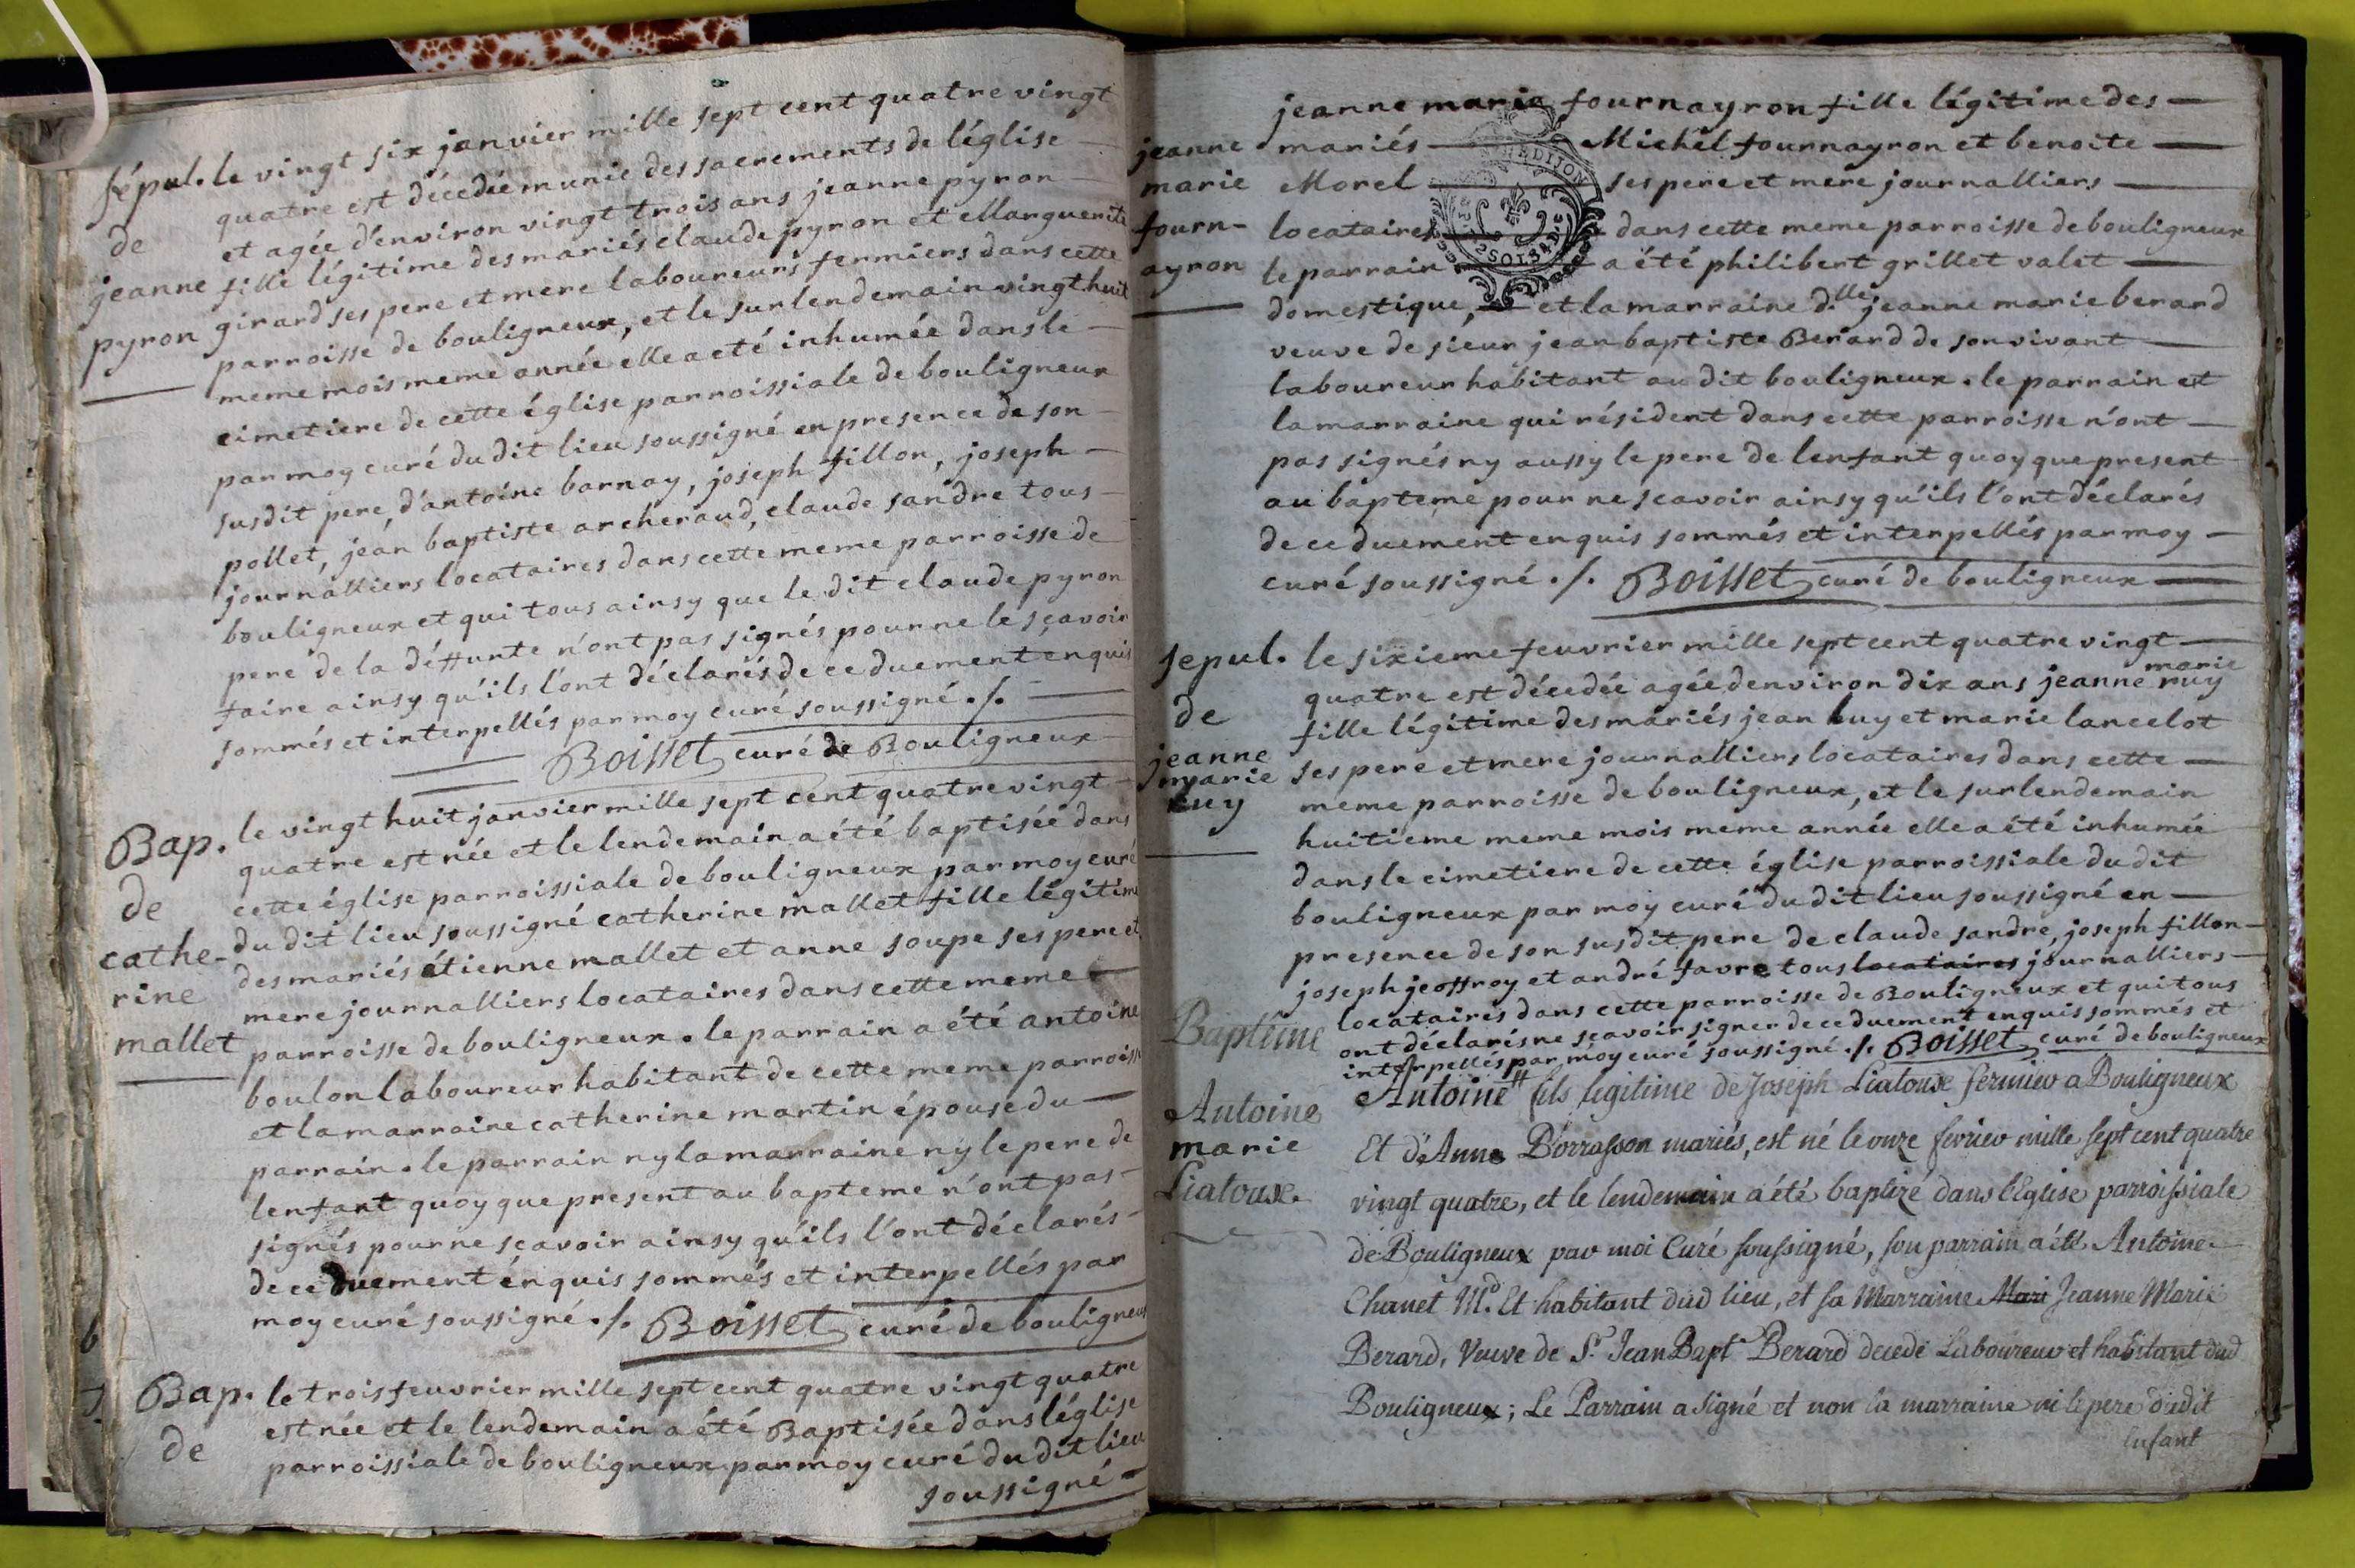 sépul. le vingt six janvier mille sept cent quatre vingt
quatre est décedée munie des sacrements de léglise
de et agée d'environ vingt trois ans jeanne pyron
jeanne fille légitime des mariés claude pyron et Marguerite
pyron girard ses pere et mere laboureurs fermiers dans cette
parroisse de bouligneux, et le surlendemain vingt huit
meme mois meme année elle a eté inhumée dans le
cimetiere de cette église parroissiale de bouligneux
par moy curé du dit lieu soussigné en presence de son
susdit pere, d'antoine barnay, joseph fillon, joseph
pollet, jean baptiste archeraud, claude sandre tous
journalliers locataires dans cette meme parroisse de
bouligneux et qui tous ainsy que le dit claude pyron
pere de la déffunte n'ont pas signés pour ne le sçavoir
faire ainsy qu'ils l'ont déclarés de ce duement enquis
sommés et interpellés par moy curé soussigné ./.
Boisset curé de Bouligneux
Bap. le vingt huit janvier mille sept cent quatre vingt
quatre est née et le lendemain a été baptisée dans
de cette église parroissiale de bouligneux par moy curé
cathe- du dit lieu soussigné catherine mallet fille légitime
rine des mariés étienne mallet et anne soupe ses pere et
mere journalliers locataires dans cette meme
mallet parroisse de bouligneux . le parrain a été antoine
boulon laboureur habitant de cette meme parroisse
et la marraine catherine martin épouse du
parrain . le parrain ny la marraine ny le pere de
lenfant quoy que present au bapteme n'ont pas
signés pour ne sçavoir ainsy qu'ils l'ont déclarés
de ce duement enquis sommés et interpellés par
moy curé soussigné ./. Boisset curé de bouligneux
Bap. le trois feuvrier mille sept cent quatre vingt quatre
est née et le lendemain a été Baptisée dans léglise
de parroissiale de bouligneux par moy curé du dit lieu
soussigné
jeanne marie fournayron fille légitime des
jeanne mariés Michel fournayron et benoite
marie Morel ses pere et mere journalliers
fourn- locataires dans cette meme parroisse de bouligneux
ayron le parrain a été philibert grillet valet
domestique, et la marraine d.lle jeanne marie berard
veuve de sieur jean baptiste Berard de son vivant
laboureur habitant au dit bouligneux . le parrain et
la marraine qui résident dans cette parroisse n'ont
pas signés ny aussy le pere de lenfant quoy que present
au bapteme pour ne scavoir ainsy qu'ils l'ont déclarés
de ce duement enquis sommés et interpellés par moy
curé soussigné ./. Boisset curé de bouligneux
sepul. le sixieme feuvrier mille sept cent quatre vingt
quatre est décedée agée denviron dix ans jeanne marie ruy
de fille légitime des mariés jean huy et marie lancelot
jeanne
marie ses pere et mere journalliers locataires dans cette
meme parroisse de bouligneux, et le surlendemain
huitieme meme mois meme année elle a été inhumée
dans le cimetiere de cette église parroissiale du dit
bouligneux par moy curé du dit lieu soussigné en
presence de son susdit pere de claude sandre, joseph fillon
joseph jeoffroy et andré favre tous locataires journalliers
locataires dans cette parroisse de Bouligneux et qui tous
ont déclarés ne scavoir signer de ce duement enquis sommés et
interpellés par moy curé soussigné ./. Boisset curé de bouligneux
Baptême Antoine fils legitime de Joseph Liatoux fermier a Bouligneux
Antoine Et d'Anne Borrasson mariés, est né le onze fevrier mille sept cent quatre
marie
Liatoux. vingt quatre, et le lendemain a été baptizé dans l'Eglise parroissiale
de Bouligneux par moi Curé soussigné, son parrain a été Antoine
Chanet M.d Et habitant dud lieu, et sa Marraine Mari Jeanne Marie
Berard, Veuve de S.r Jean Bapt Berard decede Laboureur et habitant dud
Bouligneux ; Le Parrain a signé et non la marraine ni le pere dudit
Enfant